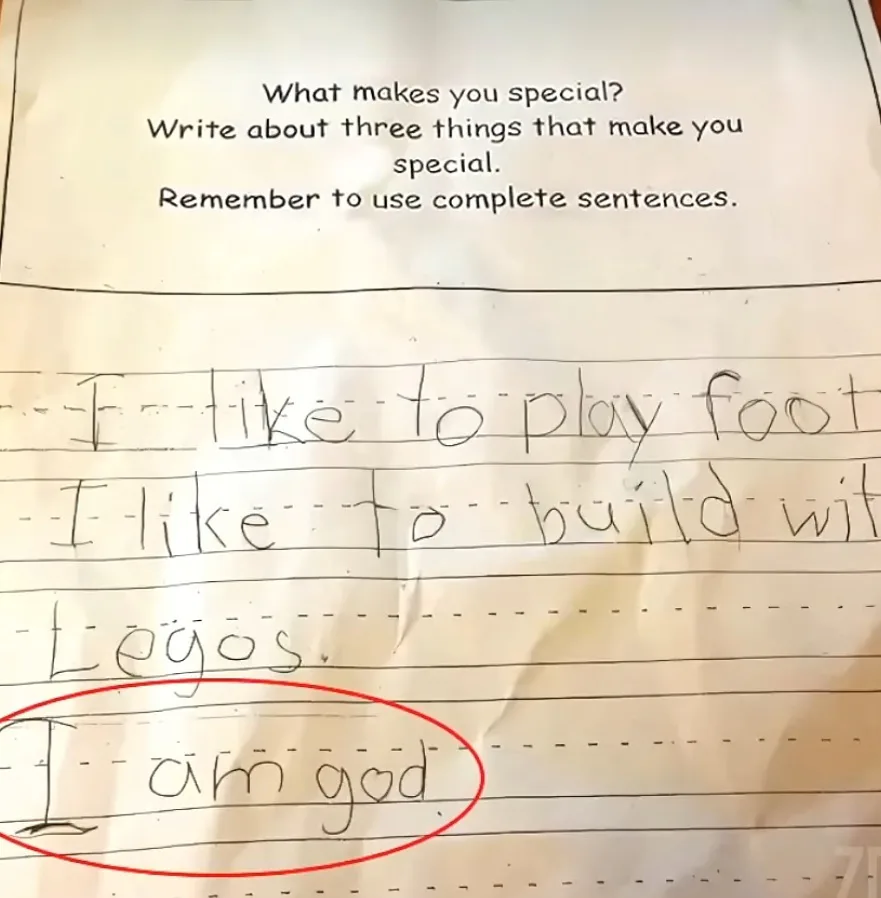 What makes you special?
Write about three things that make you
special.
Remember to use complete sentences.
I like to play foot
I like to build wit
Legos.
I am god.